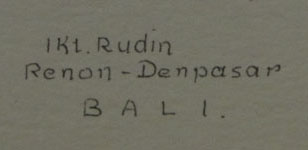 IKt. Rudin
Renon - Denpasar
BALI.